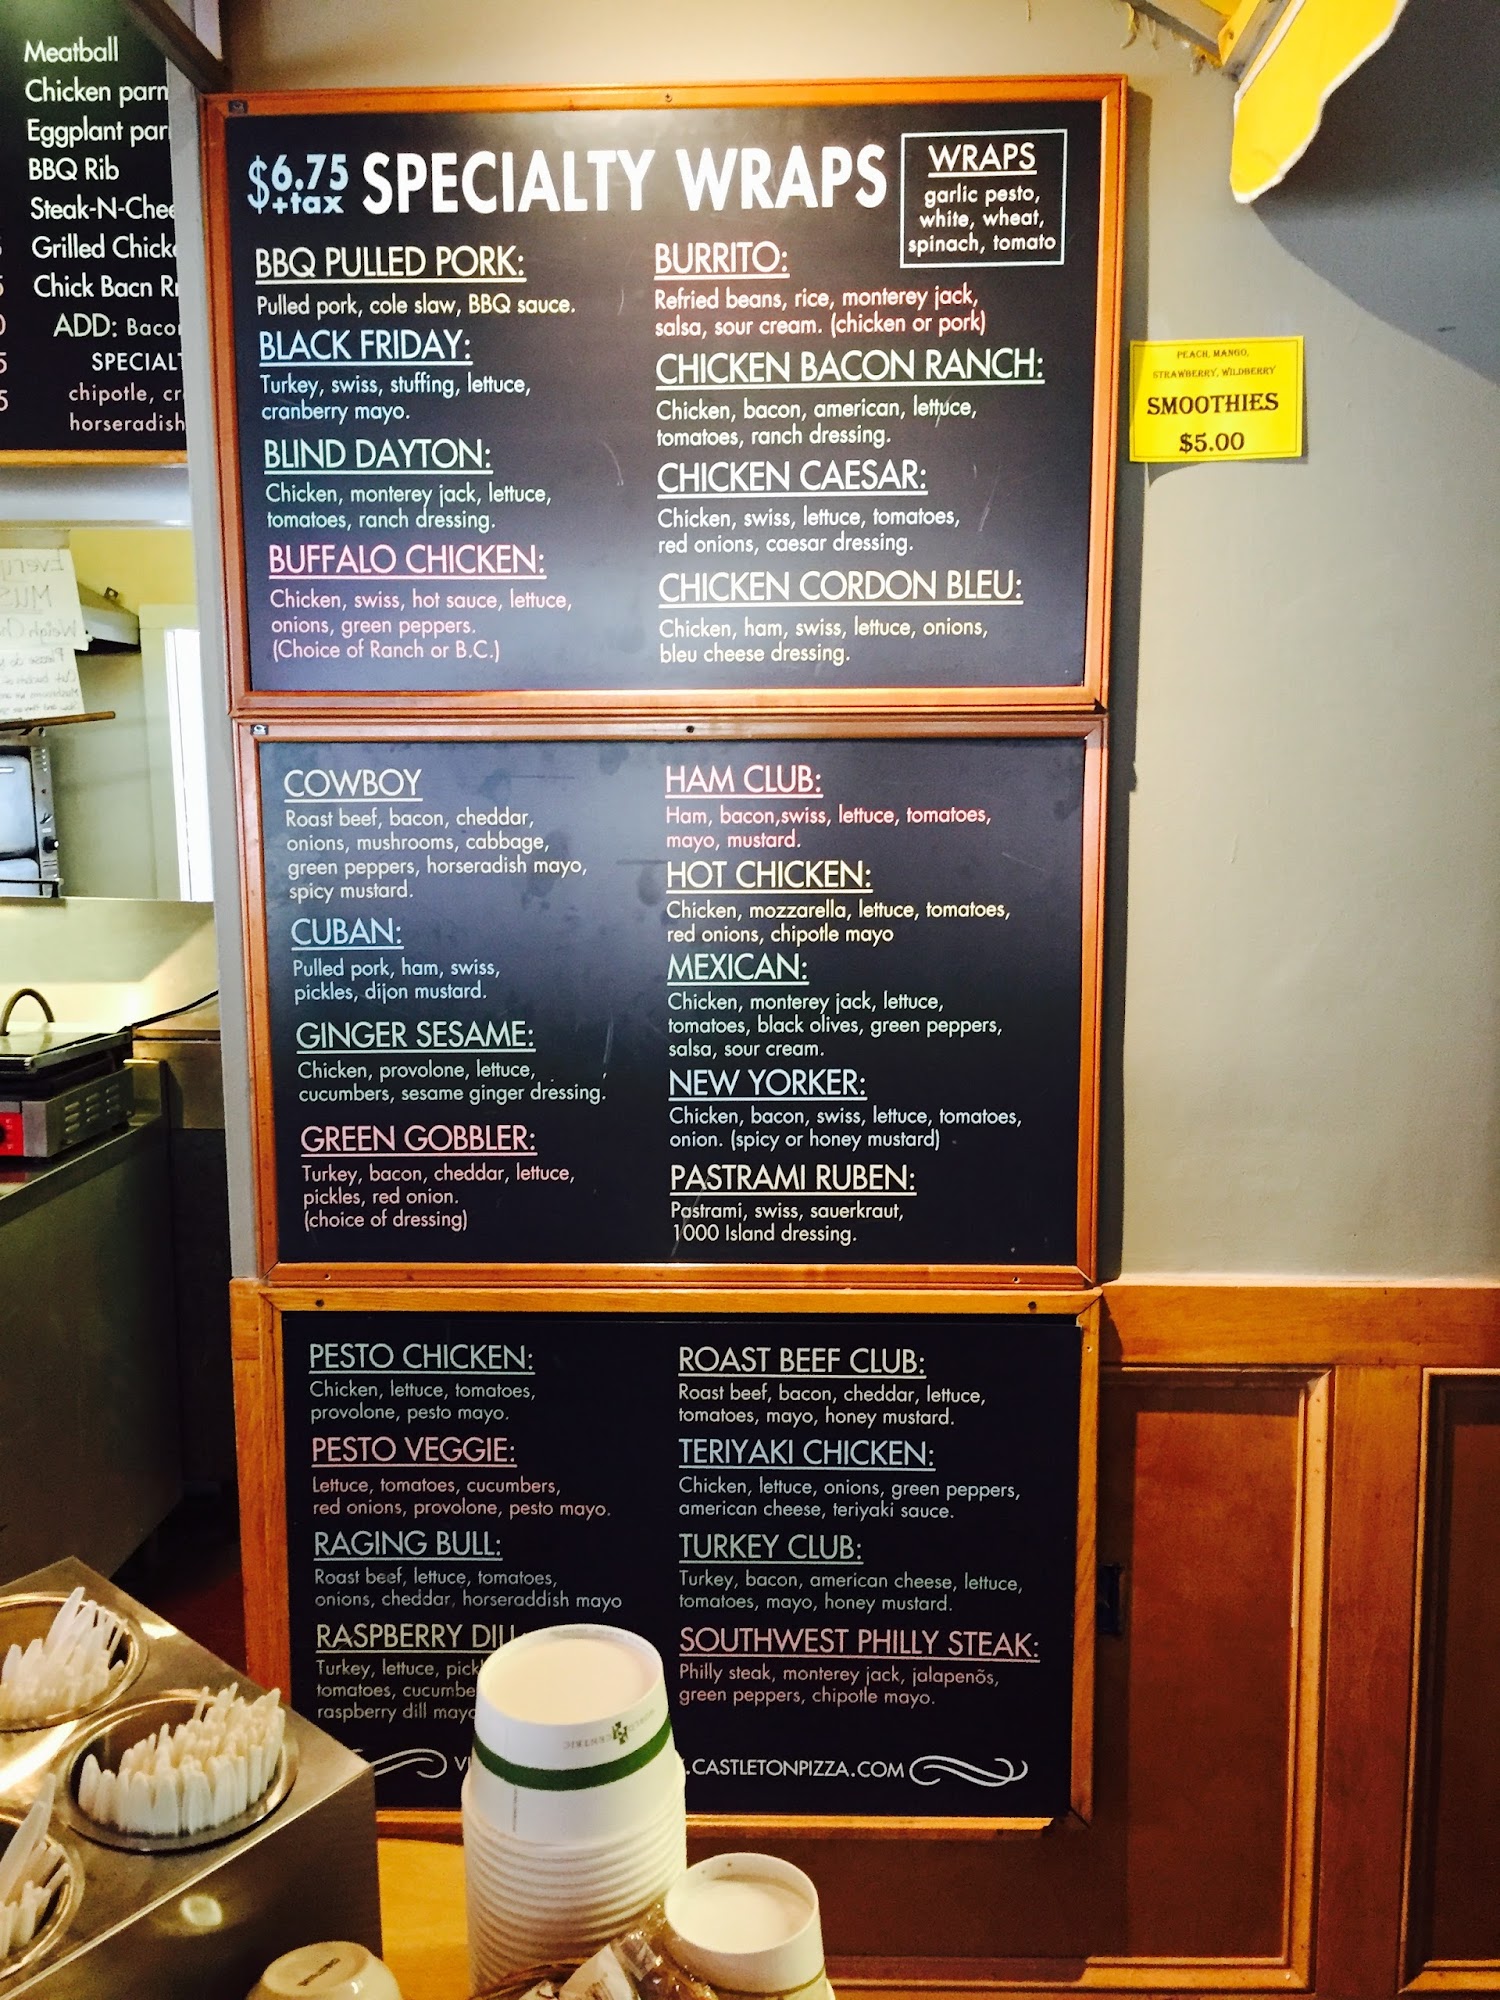 Meatball
Chicken parm
Eggplant
BBQ Rib
Steak-N-Chee
Grilled Chicke
Chick Bacn
ADD: Bacon
SPECIALT
chipotle,
horseradish
$6.75
+tax
SPECIALTY WRAPS
WRAPS
garlic pesto,
white, wheat,
spinach, tomato
BBQ PULLED PORK:
Pulled pork, cole slaw, BBQ sauce.
BLACK FRIDAY:
Turkey, swiss, stuffing, lettuce,
cranberry mayo.
BLIND DAYTON:
Chicken, monterey jack, lettuce,
tomatoes, ranch dressing.
BUFFALO CHICKEN:
Chicken, swiss, hot sauce, lettuce,
onions, green peppers.
(Choice of Ranch or B.C.)
BURRITO:
Refried beans, rice, monterey jack,
salsa, sour cream. (chicken or pork)
CHICKEN BACON RANCH:
Chicken, bacon, american, lettuce,
tomatoes, ranch dressing.
CHICKEN CAESAR:
Chicken, swiss, lettuce, tomatoes,
red onions, caesar dressing.
CHICKEN CORDON BLEU:
Chicken, ham, swiss, lettuce, onions,
bleu cheese dressing.
PEACH, MANGO,
STRAWBERRY, WILDBERRY
SMOOTHIES
$5.00
COWBOY
Roast beef, bacon, cheddar,
onions, mushrooms, cabbage,
green peppers, horseradish mayo,
spicy mustard.
CUBAN:
Pulled pork, ham, swiss,
pickles, dijon mustard.
GINGER SESAME:
Chicken, provolone, lettuce,
cucumbers, sesame ginger dressing.
GREEN GOBBLER:
Turkey, bacon, cheddar, lettuce,
pickles, red onion.
(choice of dressing)
HAM CLUB:
Ham, bacon,swiss, lettuce, tomatoes,
mayo, mustard.
HOT CHICKEN:
Chicken, mozzarella, lettuce, tomatoes,
red onions, chipotle mayo
MEXICAN:
Chicken, monterey jack, lettuce,
tomatoes, black olives, green peppers,
salsa, sour cream.
NEW YORKER:
Chicken, bacon, swiss, lettuce, tomatoes,
onion. (spicy or honey mustard)
PASTRAMI RUBEN:
Pastrami, swiss, sauerkraut,
1000 Island dressing.
PESTO CHICKEN:
Chicken, lettuce, tomatoes,
provolone, pesto mayo.
PESTO VEGGIE:
Lettuce, tomatoes, cucumbers,
red onions, provolone, pesto mayo.
RAGING BULL:
Roast beef, lettuce, tomatoes,
onions, cheddar, horseraddish mayo
RASPBERRY DILL:
Turkey, lettuce, pick
tomatoes, cucumbe
raspberry dill mayo
ROAST BEEF CLUB:
Roast beef, bacon, cheddar, lettuce,
tomatoes, mayo, honey mustard.
TERIYAKI CHICKEN:
Chicken, lettuce, onions, green peppers,
american cheese, teriyaki sauce.
TURKEY CLUB:
Turkey, bacon, american cheese, lettuce,
tomatoes, mayo, honey mustard.
SOUTHWEST PHILLY STEAK:
Philly steak, monterey jack, jalapenõs,
green peppers, chipotle mayo.
.CASTLETONPIZZA.COM